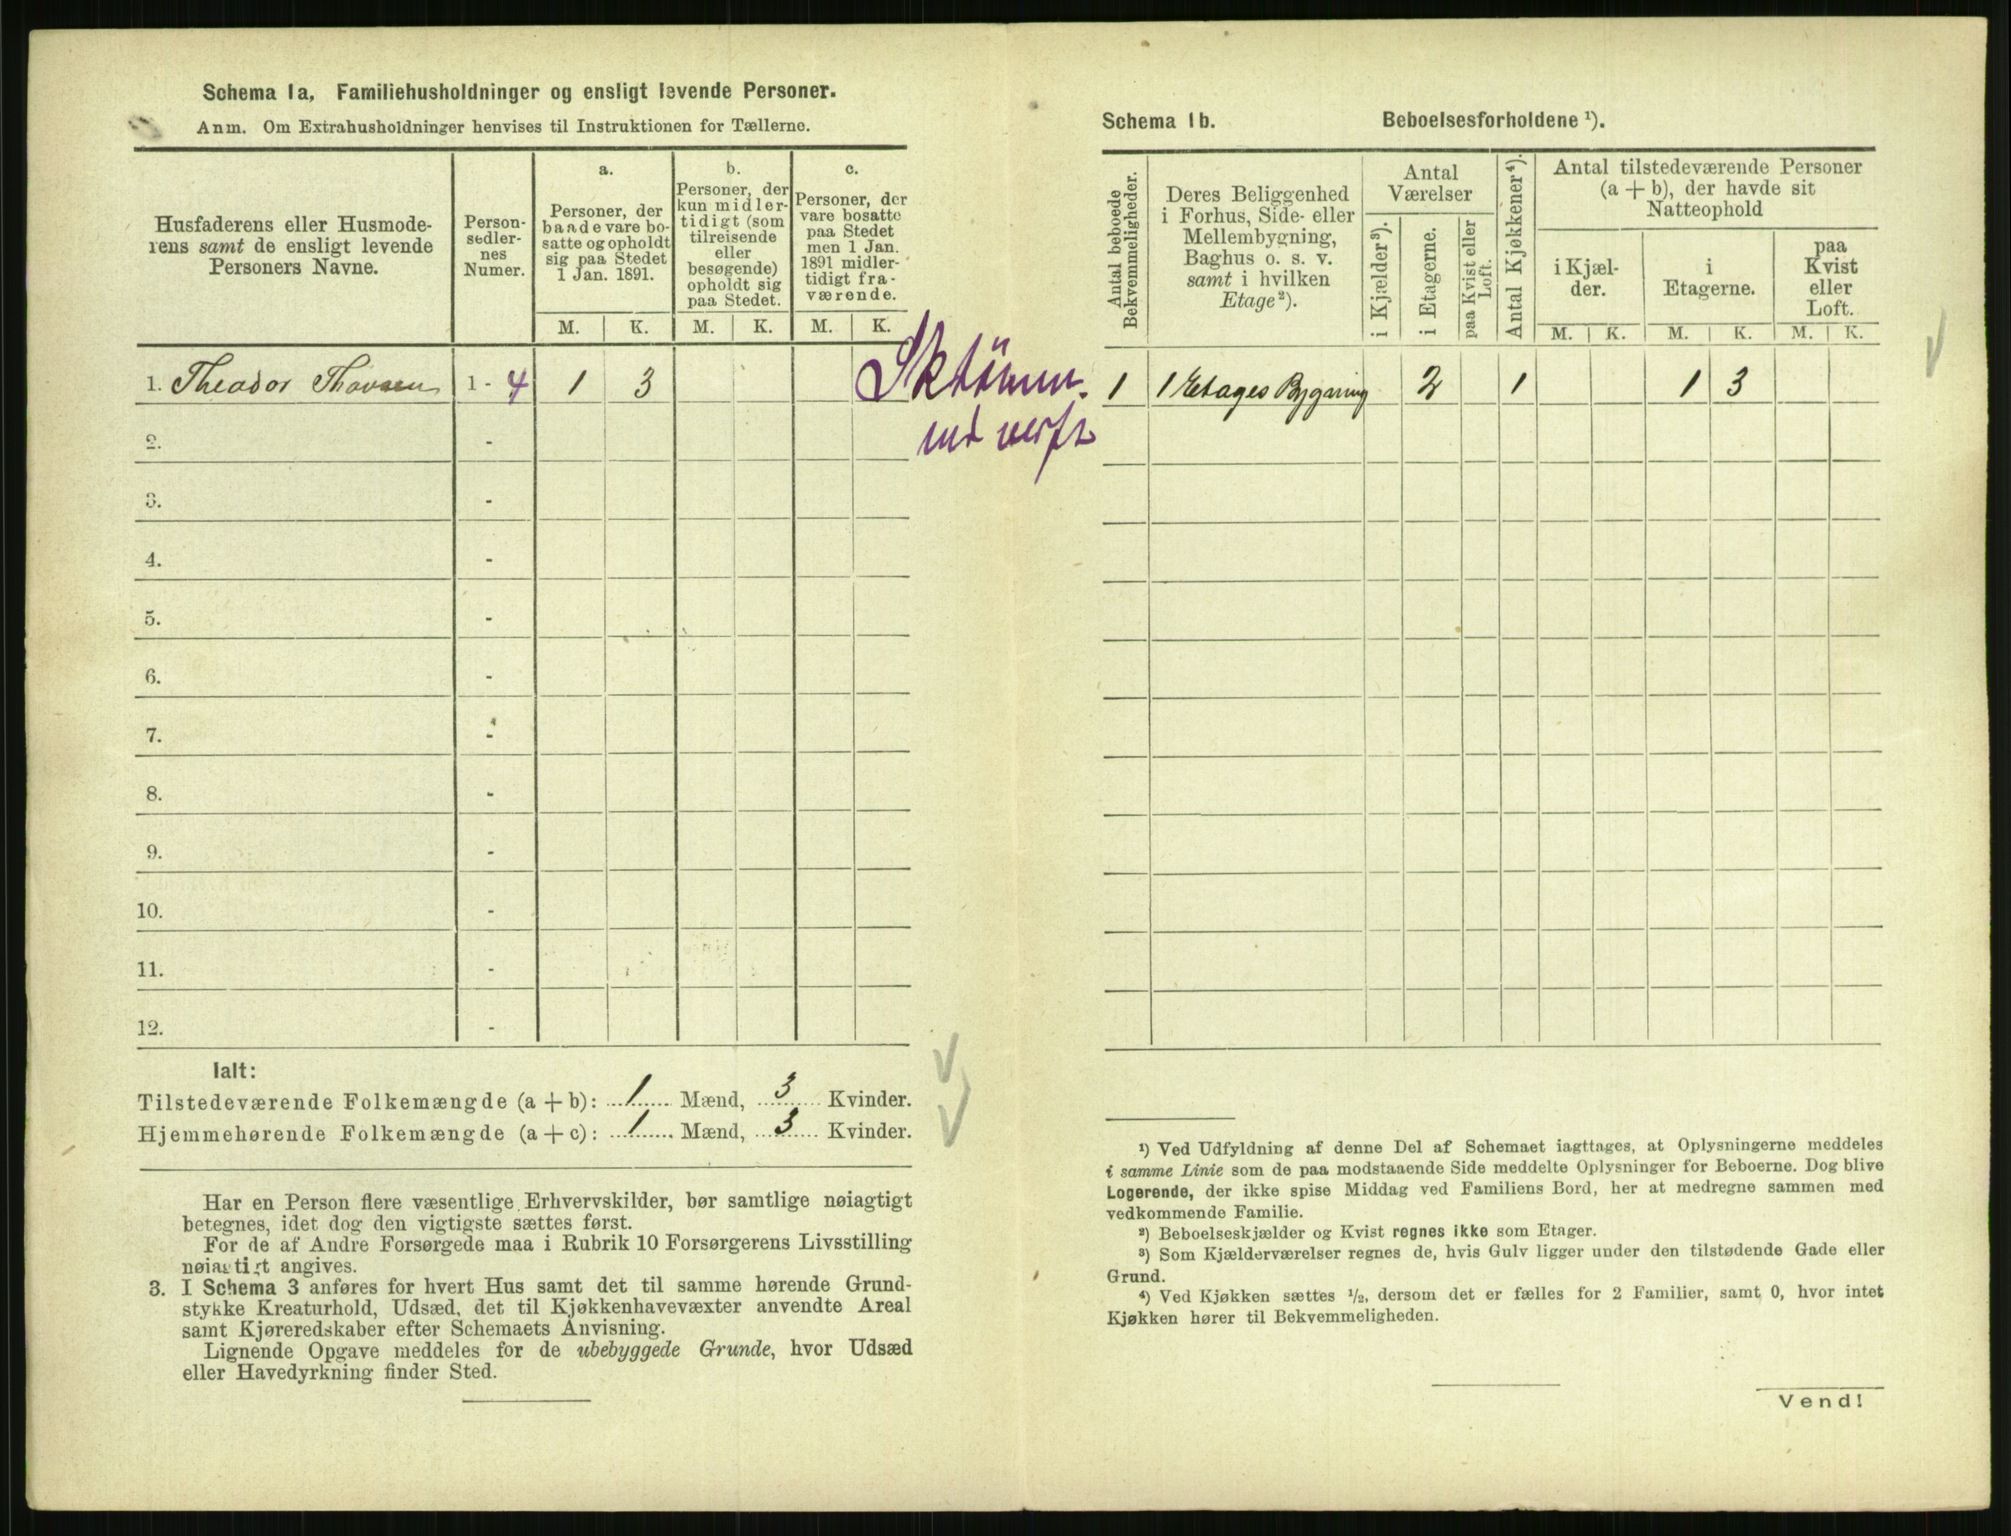 Schema 1a, Familiehusholdninger og ensligt levende Personer.
Anm. Om Extrahusholdninger henvises til Instruktionen for Tællerne.
Husfaderens eller Husmoderens samt de ensligt levende Personers Navne.
Personsedlernes Numer.
a.
Personer, der baade vare bosatte og opholdt sig paa Stedet 1 Jan. 1891.
b.
Personer, der kun midlertidigt (som tilreisende eller besøgende) opholdt sig paa Stedet.
c.
Personer, der vare bosatte paa Stedet men 1 Jan. 1891 midlertidigt fraværende.
M. K. M. K. M. K.
1. Theodor 1 - 4 1 3
2. -
3. -
4. -
5. -
6. -
7. -
8. -
9. -
10. -
11. -
12. -
Ialt:
Tilstedeværende Folkemængde (a + b): 1 Mænd, 3 Kvinder.
Hjemmehørende Folkemængde (a + c): 1 Mænd, 3 Kvinder.
Har en Person flere væsentlige Erhvervskilder, bør samtlige nøiagtigt
betegnes, idet dog den vigtigste sættes først.
For de af Andre Forsørgede maa i Rubrik 10 Forsørgerens Livsstilling
nøiagtigt angives.
3. I Schema 3 anføres for hvert Hus samt det til samme hørende Grund-
stykke Kreaturhold, Udsæd, det til Kjøkkenhavevæxter anvendte Areal
samt Kjøreredskaber efter Schemaets Anvisning.
Lignende Opgave meddeles for de ubebyggede Grunde, hvor Udsæd
eller Havedyrkning finder Sted.
Schema 1b. Beboelsesforholdene ¹).
Antal beboede Bekvemmeligheder.
Deres Beliggenhed i Forhus, Side- eller Mellembygning, Baghus o. s. v. samt i hvilken Etage²).
Antal Værelser
i Kjælder³).
i Etagerne.
paa Kvist eller Loft.
Antal Kjøkkener⁴).
Antal tilstedeværende Personer (a + b), der havde sit Natteophold
i Kjælder.
i Etagerne.
paa Kvist eller Loft.
M. K. M. K. M. K.
1 1 Etages Bygning 2 1 1 3
¹) Ved Udfyldning af denne Del af Schemaet iagttages, at Oplysningerne meddeles
i samme Linie som de paa modstaaende Side meddelte Oplysninger for Beboerne. Dog blive
Logerende, der ikke spise Middag ved Familiens Bord, her at medregne sammen med
vedkommende Familie.
²) Beboelseskjælder og Kvist regnes ikke som Etager.
³) Som Kjælderværelser regnes de, hvis Gulv ligger under den tilstødende Gade eller
Grund.
⁴) Ved Kjøkken sættes ½, dersom det er fælles for 2 Familier, samt 0, hvor intet
Kjøkken hører til Bekvemmeligheden.
Vend!